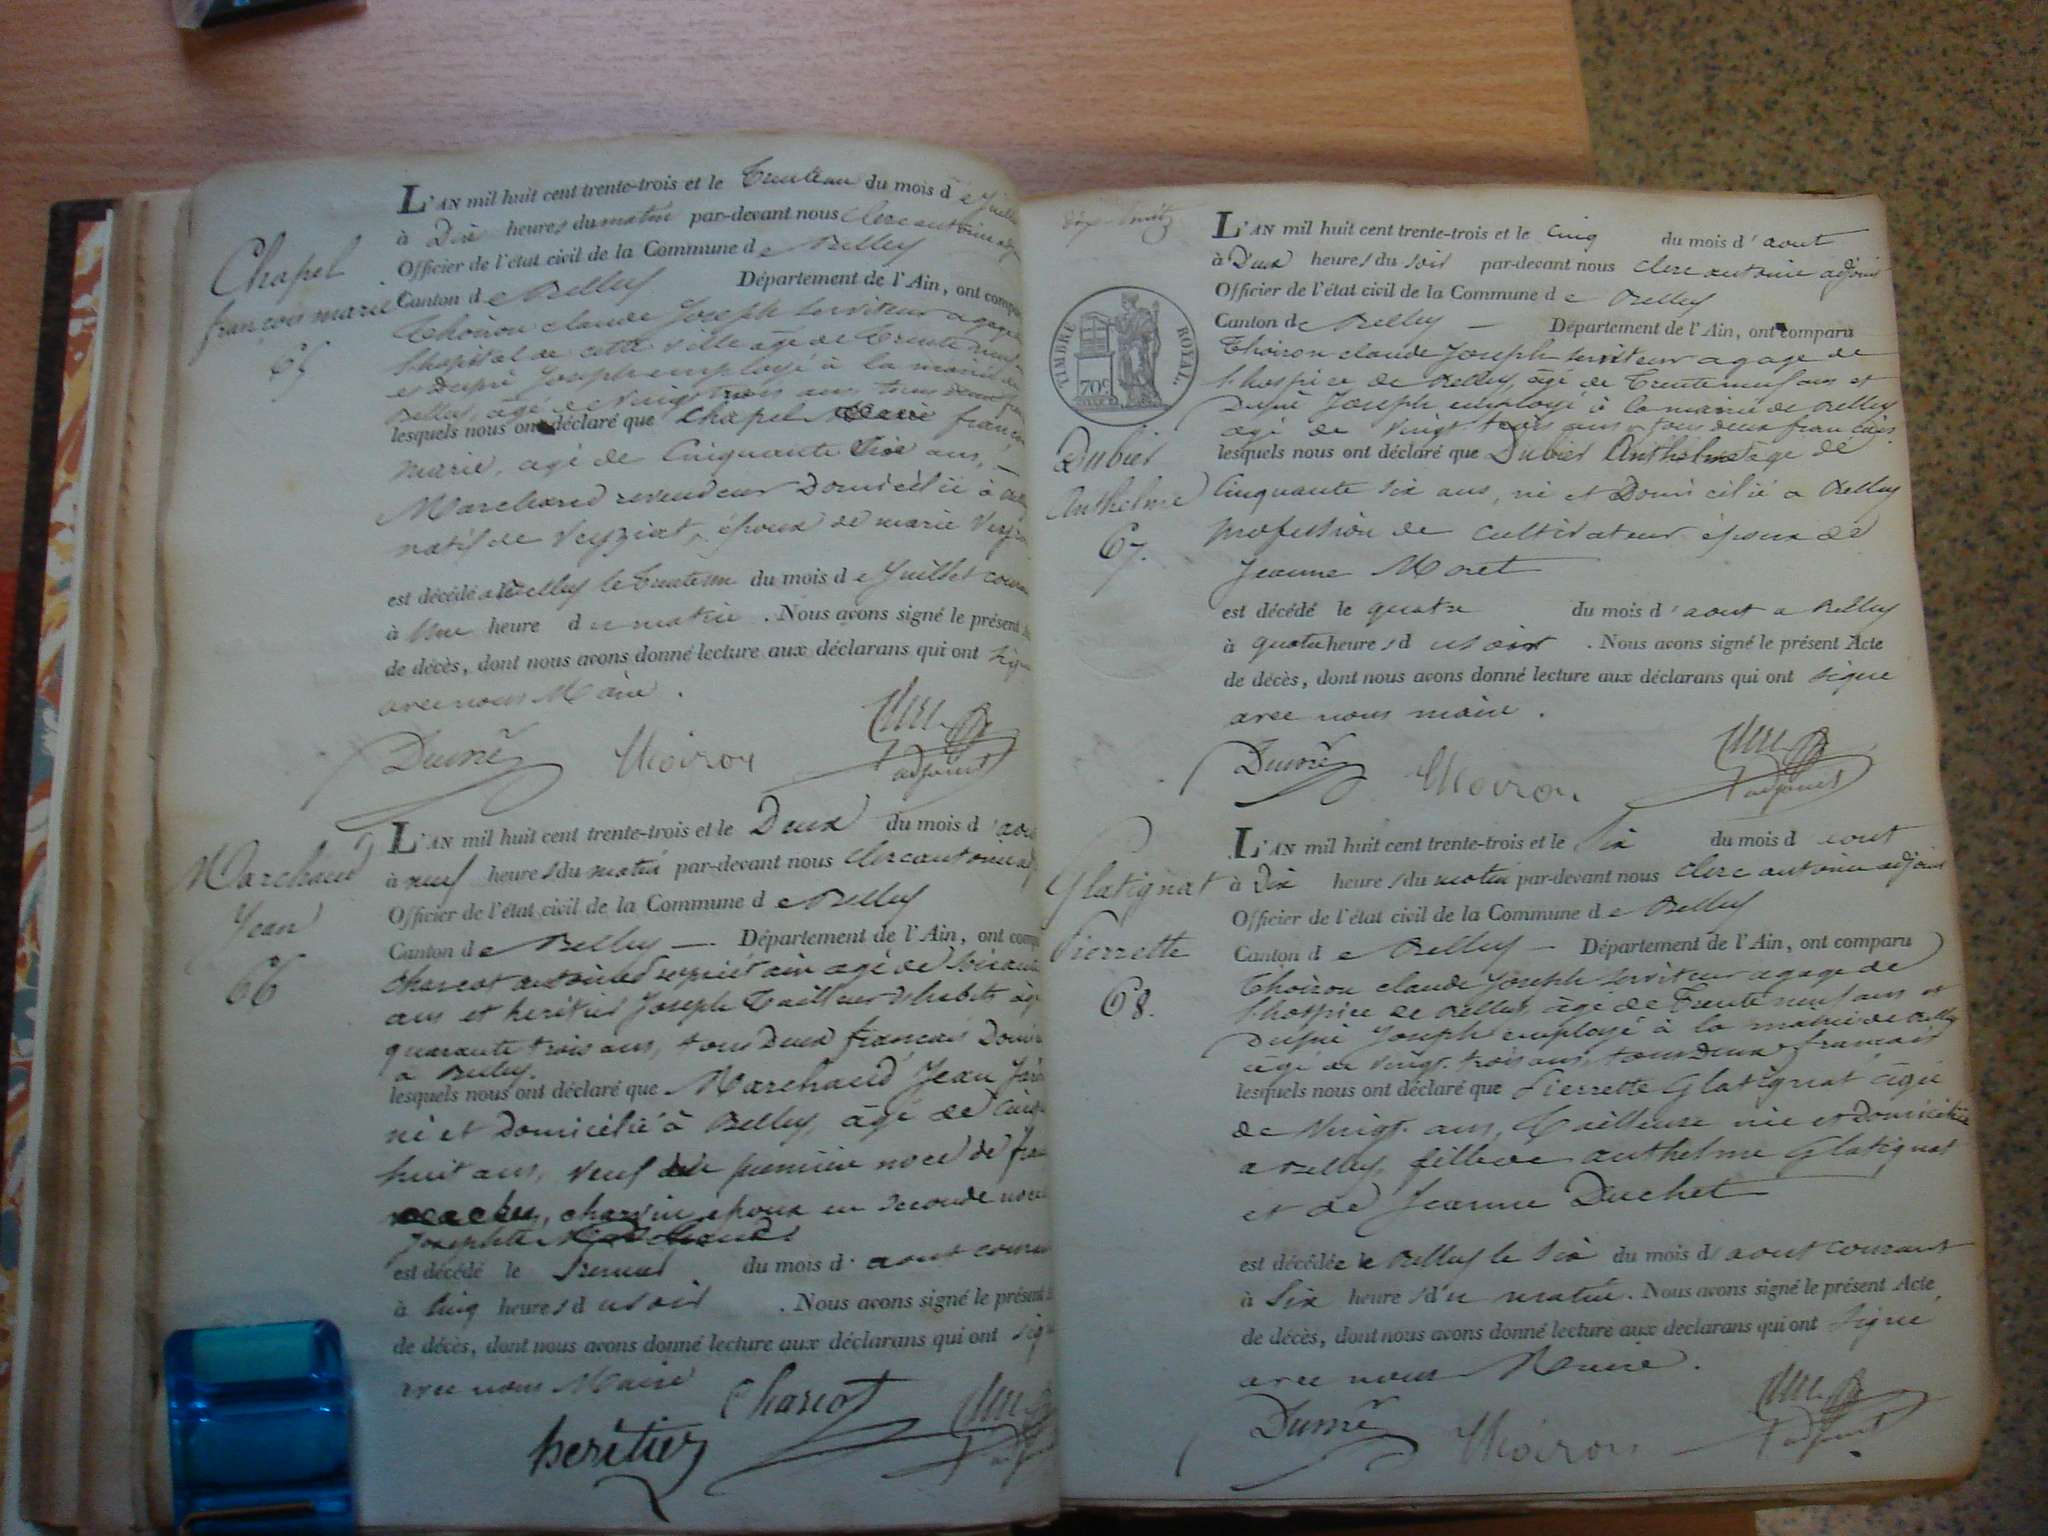 L'AN mil huit cent trente-trois et le trenteun du mois de Juillet
à Dix heures du matin par-devant nous Clerc antoine
Officier de l'état civil de la Commune de Belley
Chapel
françois marie
65
Canton de Belley Département de l'Ain, ont
Thoiron claude Joseph serviteur a gage
l'hopital de cette ville âgé de trente neuf
et Joseph employé à la mairie de
Belley, âgé de vingt trois ans tous deux
lesquels nous ont déclaré que Chapel françois
marie, agé de Cinquante ans,
Marchand revendeur Domicilié à
natif de Veyziat, époux de marie
est décédé a Belley le trenteun du mois de Juillet courant
à une heure du matin . Nous avons signé le présent
de décès, dont nous avons donné lecture aux déclarans qui ont signé
avec nous Maire .
Thoiron
adjoint
Marchand
Jean
66
L'AN mil huit cent trente-trois et le Deux du mois d'aout
à neuf heures du matin par-devant nous Clerc antoine
Officier de l'état civil de la Commune de Belley
Canton de Belley — Département de l'Ain, ont
Charcot propriétaire agé de
ans et heritier Joseph Tailleur d'habits âgé
quarante trois ans, tous Deux français
a Belley.
lesquels nous ont déclaré que Marchand Jean
né et Domicilié à Belley, âgé de
huit ans, veuf de première noce de
époux en seconde noce
Josephte
est décédé le Premier du mois d' aout courant
à cinq heures du soir . Nous avons signé le présent
de décès, dont nous avons donné lecture aux déclarans qui ont signé
avec nous Maire
Charcot
heritier
L'AN mil huit cent trente-trois et le cinq du mois d'aout
à Deux heures du soir par-devant nous Clerc antoine adjoint
Officier de l'état civil de la Commune de Belley
TIMBRE ROYAL.
70c
Canton de Belley — Département de l'Ain, ont comparu
Thoiron claude Joseph serviteur a gage de
l'hospice de Belley, âgé de trente neuf ans et
Joseph employé à la mairie de Belley
agé de vingt trois ans, tous deux français
Dubier
Anthelme
67.
lesquels nous ont déclaré que Dubier Anthelme agé de
Cinquante six ans, né et Domicilié a Belley
profession de cultivateur époux de
Jeanne Moret
est décédé le quatre du mois d'aout a Belley
à quatre heures du soir . Nous avons signé le présent Acte
de décès, dont nous avons donné lecture aux déclarans qui ont signé
avec nous maire .
Thoiron
adjoint
Glatignat
Pierrette
68.
L'AN mil huit cent trente-trois et le Six du mois d aout
à Dix heures du matin par-devant nous Clerc antoine adjoint
Officier de l'état civil de la Commune de Belley
Canton de Belley — Département de l'Ain, ont comparu
Thoiron claude Joseph serviteur a gage de
l'hospice de Belley, âgé de trente neuf ans et
Joseph employé à la mairie de Belley
âgé de vingt trois ans, tous Deux français
lesquels nous ont déclaré que Pierrette Glatignat âgée
de vingt ans, Tailleuse née et Domiciliée
a Belley, fille de anthelme Glatignat
et de Jeanne Duchet
est décédée Belley le Six du mois d'aout courant
à Six heures du matin . Nous avons signé le présent Acte
de décès, dont nous avons donné lecture aux déclarans qui ont signé
avec nous Maire .
Thoiron
adjoint